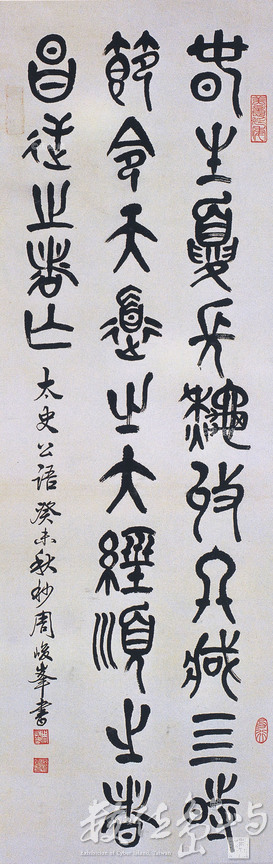 春生夏長秋收冬藏三時
節令天道之大經順之者
昌逆之者亡
太史公語 癸未秋杪周峻峯書
數位島嶼